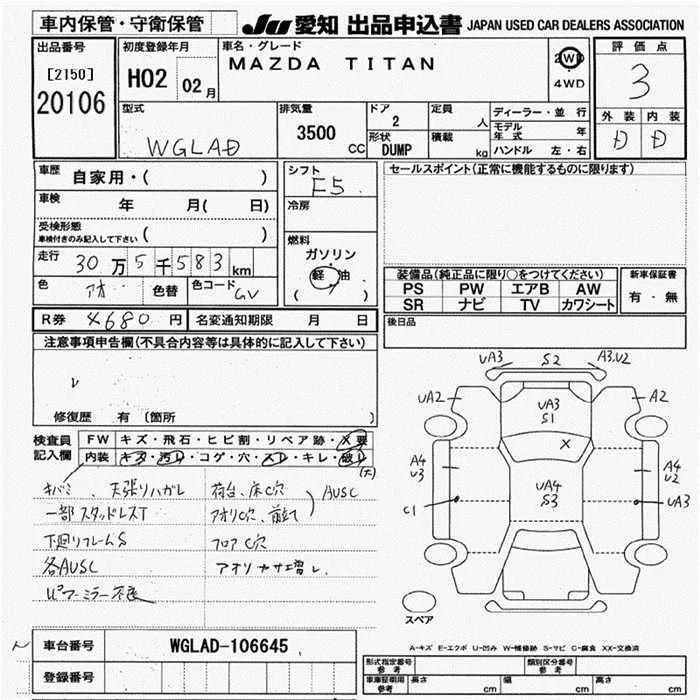 車内保管・守衛保管
JU 愛知 出品申込書 JAPAN USED CAR DEALERS ASSOCIATION
出品番号
[2150]
20106
初度登録年月
H02 02月
車名・グレード
MAZDA TITAN
2WD
4WD
評価点
3
外装 内装
D D
型式
WGLAD
排気量
3500 CC
ドア
2
形状
DUMP
定員
人
積載
kg
ディーラー・並行
モデル年式 年
ハンドル 左・右
車歴
自家用・( )
車検
年 月( 日)
受検形態
車検付きのみ記入して下さい ( )
走行
30万5千583km
色
アオ
色替
色コード
GV
シフト
F5
冷房
燃料
ガソリン
軽油
( )
セールスポイント(正常に機能するものに限ります)
装備品(純正品に限り○をつけてください)
PS PW エアB AW
SR ナビ TV カワシート
新車保証書
有・無
後日品
R券 4680円 名変通知期限 月 日
注意事項申告欄(不具合内容等は具体的に記入して下さい)
修復歴 有 〔箇所 〕
検査員記入欄
FW キズ・飛石・ヒビ割・リペア跡・X要
内装 キズ・汚れ・コゲ・穴・スレ・キレ・破れ
(大)
キバミ、天張りハガレ
一部スタッドレスT
下廻りフレームS
各AUSC
荷台、床C穴
アオリC穴、前立て
AUSC
フロアC穴
UA3 S2 A3.U2
UA2 A2
UA3
S1
X
A4
U3
A4
U2
UA4
S3
C1
UA3
スペア
A-キズ E-エクボ U-凹み W-補修跡 S-サビ C-腐食 XX-交換済
車台番号 WGLAD-106645
登録番号
形式指定番号
参考
類別区分番号
参考
車庫証明用
参考
長さ cm 幅 cm 高さ cm